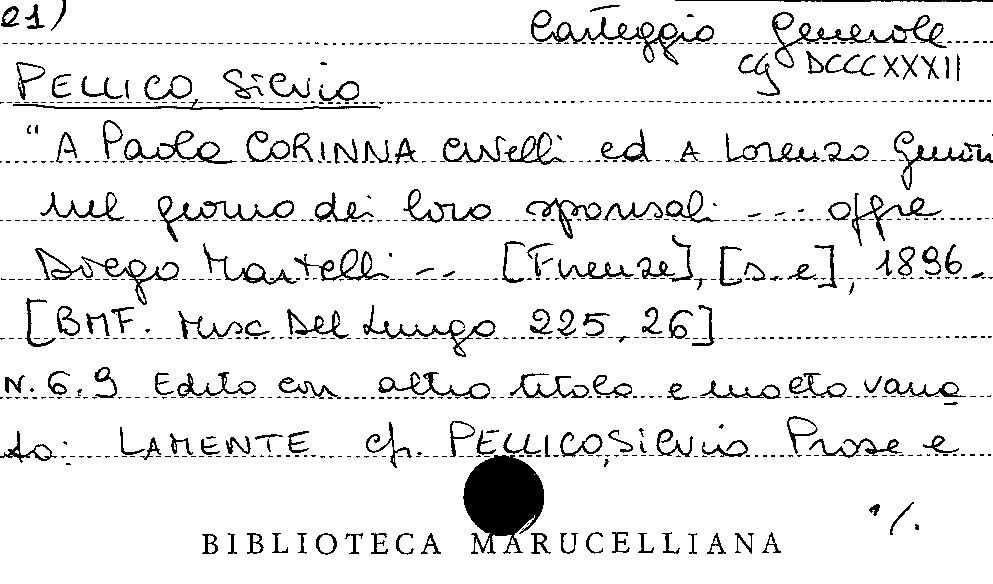 e1)
Carteggio Generale
CG DCCCXXXII
PELLICO, Silvio
"A Paola CORINNA Civelli ed A Lorenzo
nel giorno dei loro sponsali --- offre
Diego Martelli -- [Firenze], [s.e], 1896.
[BMF. Misc Del Lungo 225, 26]
N. 6.9 Edito con altro titolo e molto varia
to: LAMENTE cfr. PELLICO, Silvio Prose e
1/.
BIBLIOTECA MARUCELLIANA